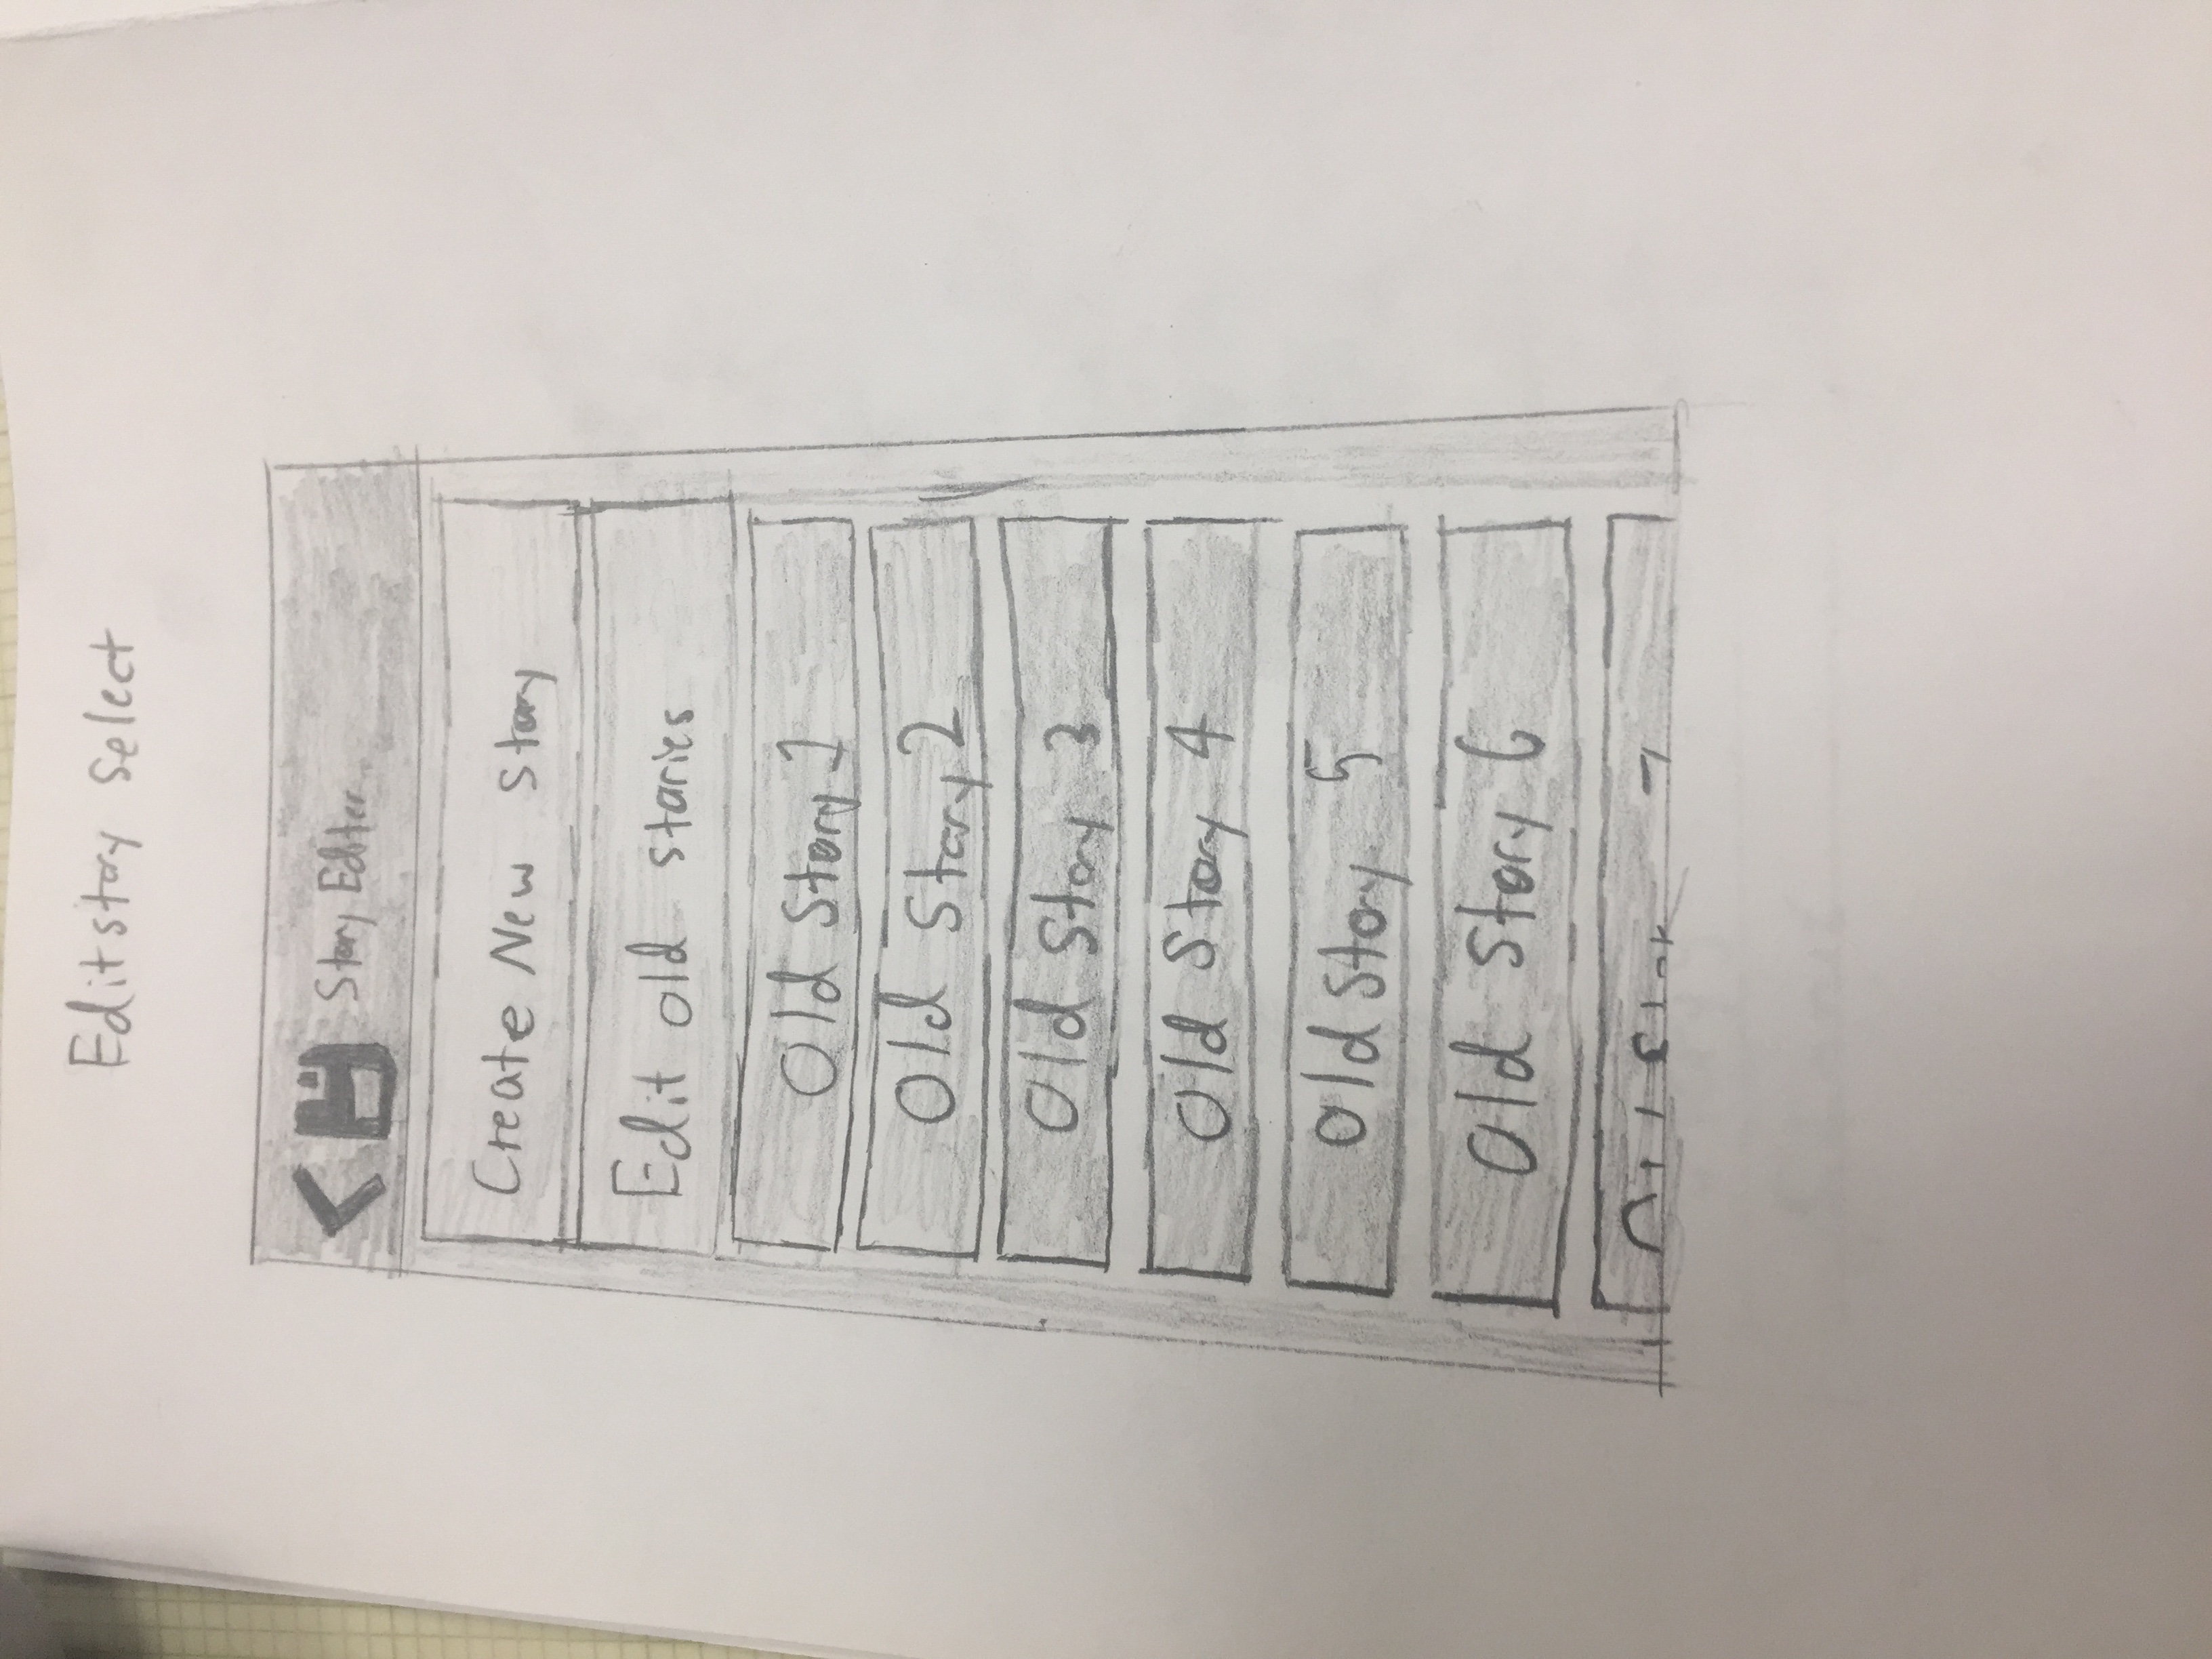 Edit story Select
Story Editer
Create New story
Edit old stories
Old Story 1
Old Story 2
Old Story 3
Old Story 4
Old Story 5
Old Story 6